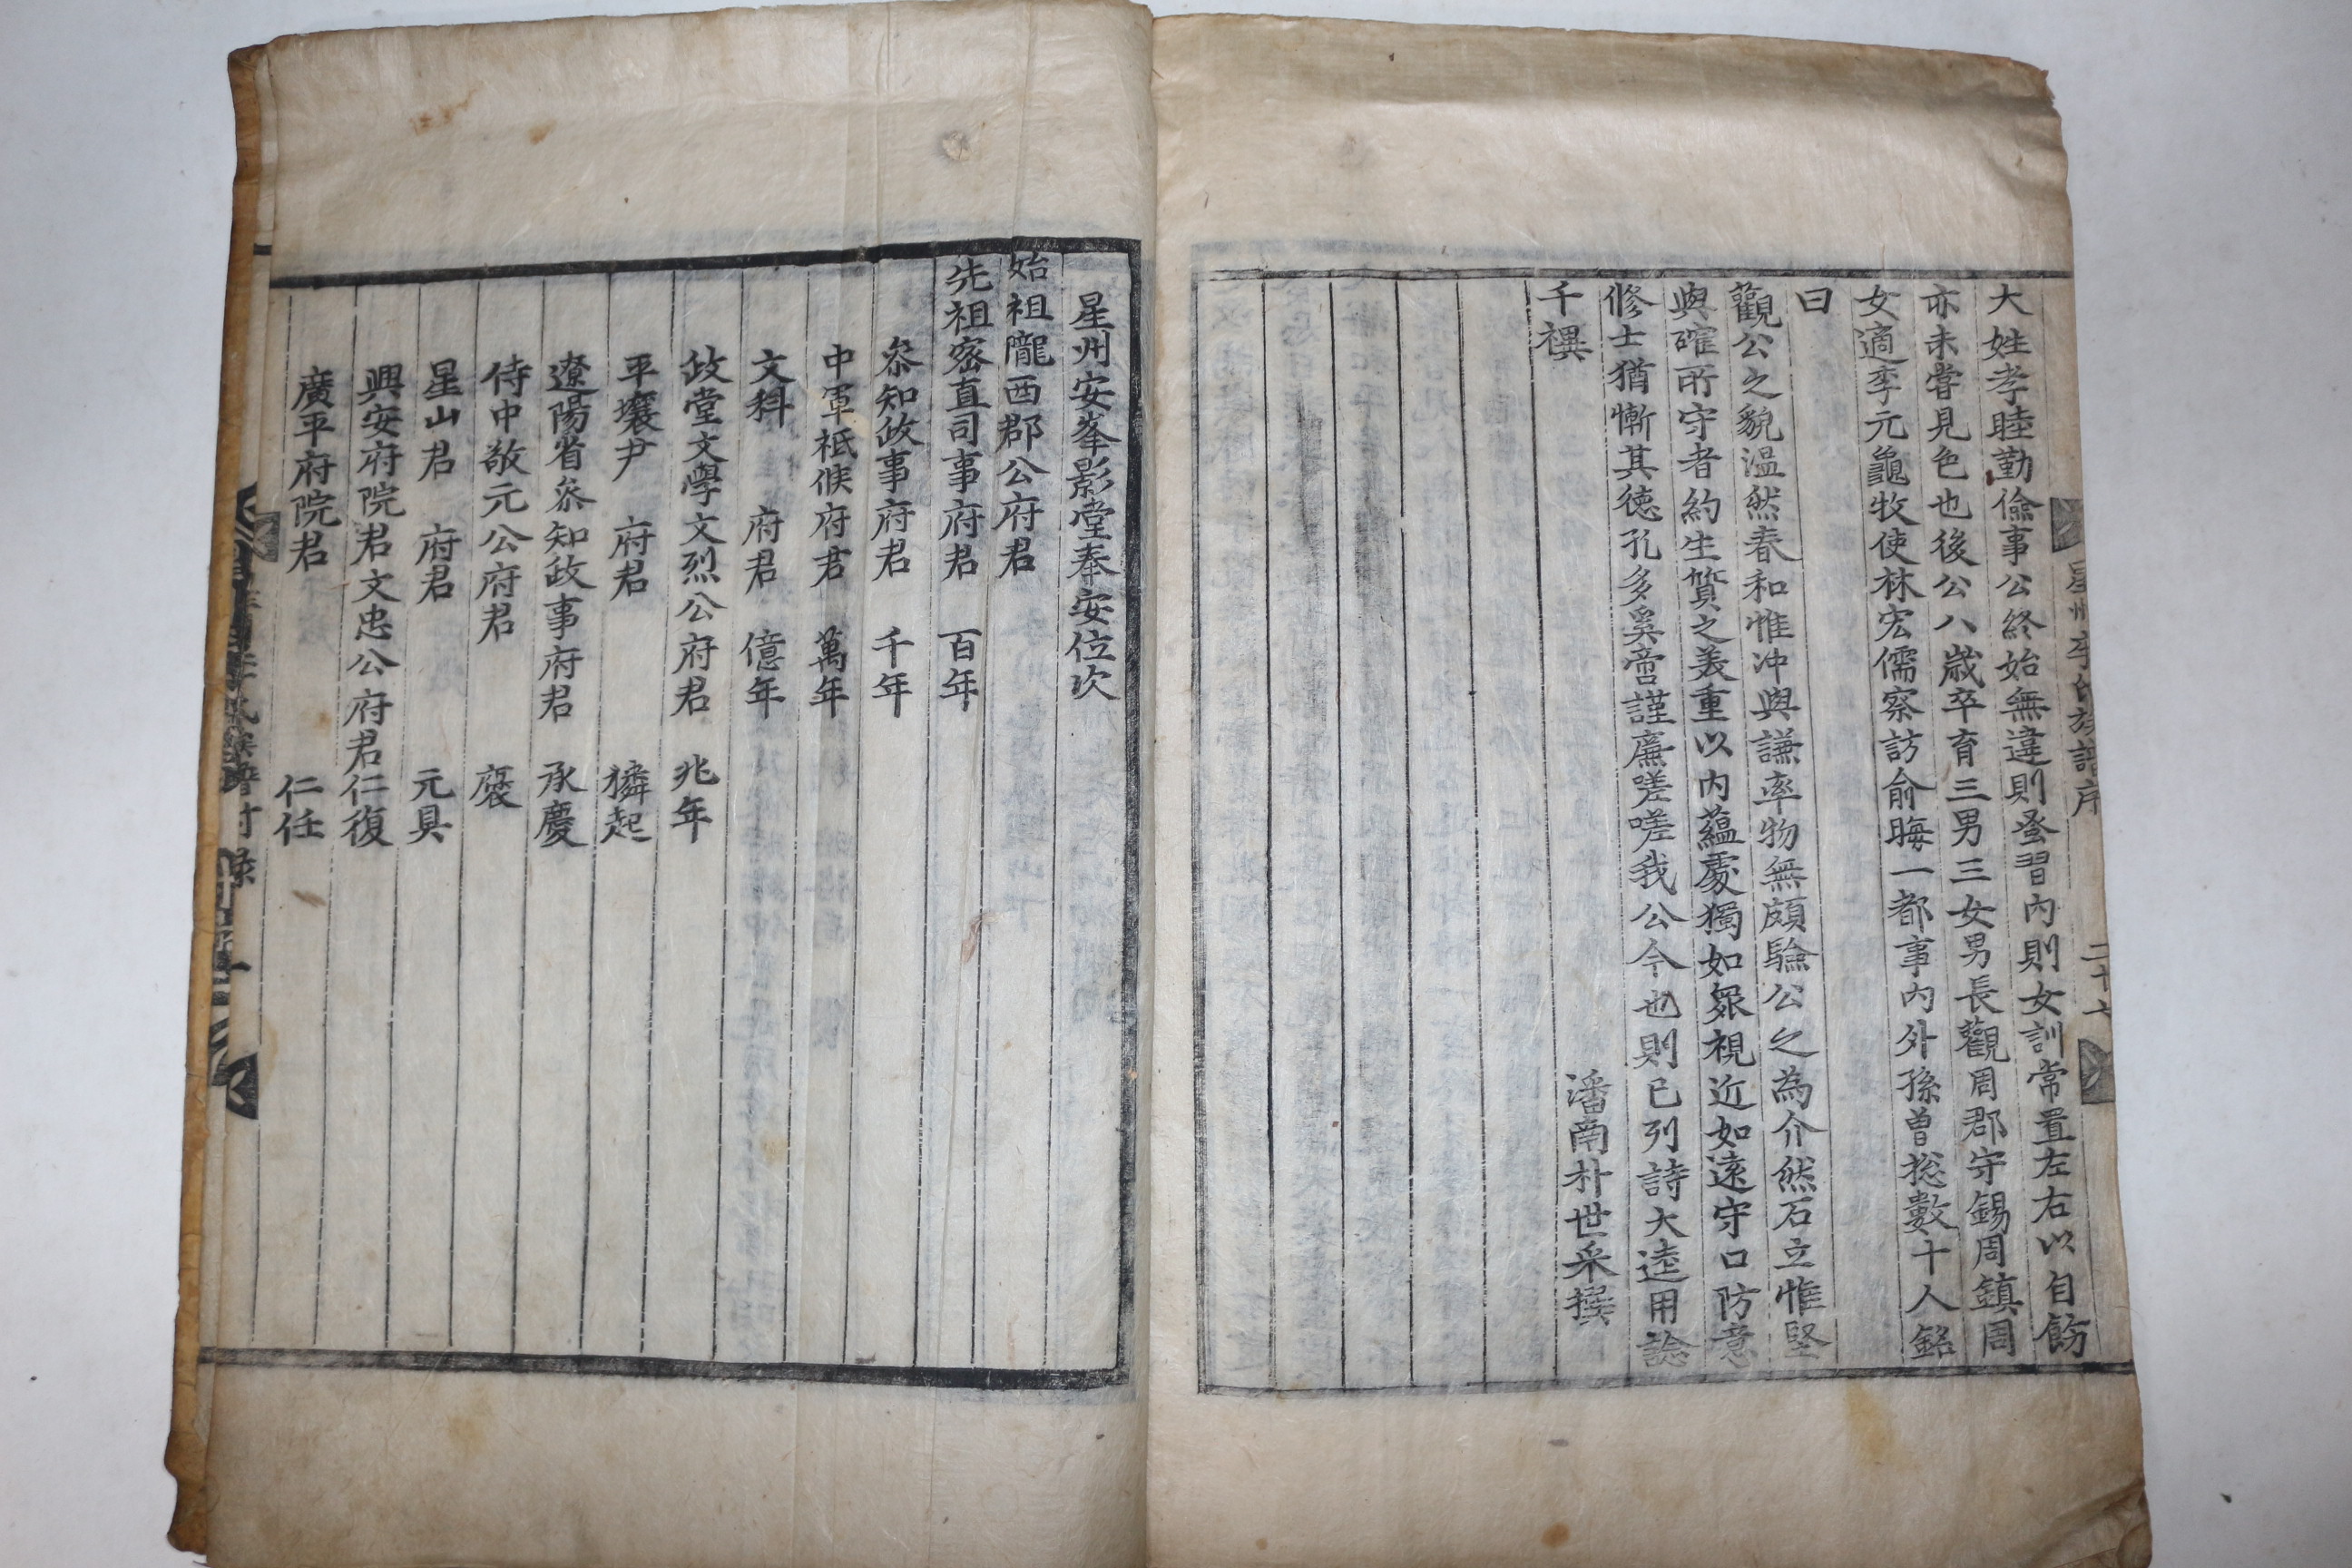 星州李氏族譜序 二十七
大姓孝睦勤儉事公終始無違則蚤習內則女訓常置左右以自飭
亦未嘗見色也後公八歲卒育三男三女男長觀周郡守錫周鎮周
女適李元龜牧使林宏儒察訪俞晦一都事內外孫曾摠數十人銘
曰
觀公之貌溫然春和惟沖與謙率物無頗驗公之為介然石立惟堅
與確所守者約生質之美重以內蘊處獨如衆視近如遠守口防意
修士猶慚其德孔多奚啻謹廉嗟嗟我公今也則已列詩大逵用諗
千禩
潘南朴世采撰
星州安峯影堂奉安位次
始祖隴西郡公府君
先祖密直司事府君 百年
叅知政事府君 千年
中軍祇候府君 萬年
文科 府君 億年
政堂文學文烈公府君 兆年
平壤尹 府君 獜起
遼陽省叅知政事府君 承慶
侍中敬元公府君 褒
星山君 府君 元具
興安府院君文忠公府君仁復
廣平府院君 仁任